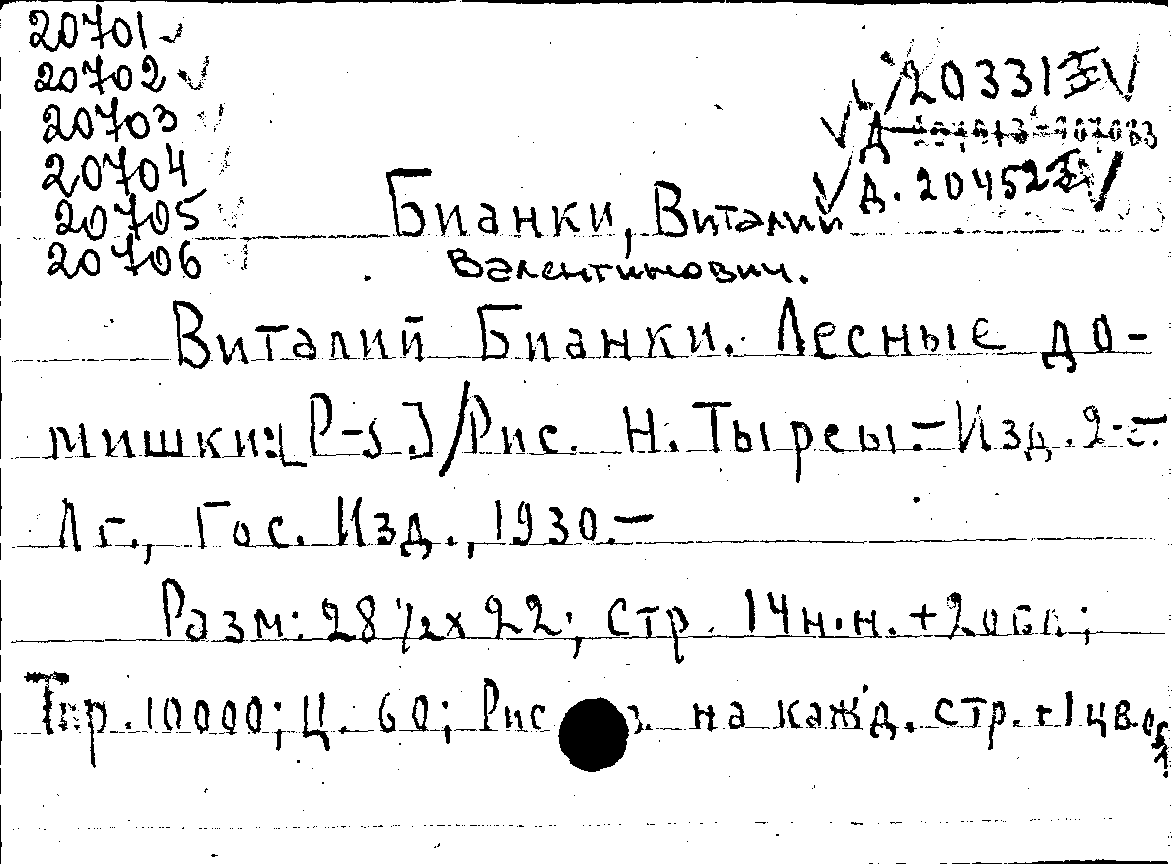 20701
20702
20703
20704
20705
20706
20331
Д
Д. 20452
Бианки, Виталий
Валентинович.
Виталий Бианки. Лесные до-
мишки:[Р-з.]/Рис. Н. Тырсы.-Изд. 2-е.-
Лг., Гос. Изд., 1930.-
Разм: 28 1/2 x 22; стр. 14н.н. + 2обл;
Тир. 10000; Ц. 60; Рис на кажд. стр. + 1 цв.